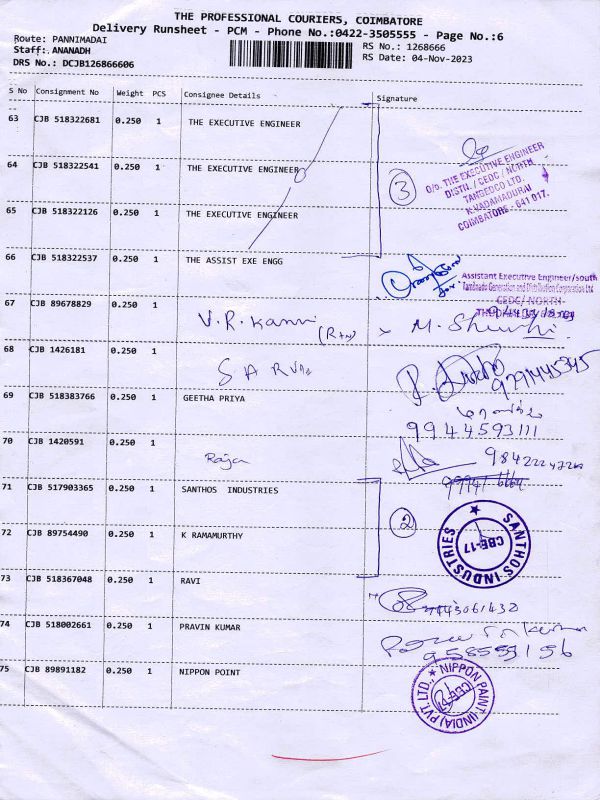 THE PROFESSIONAL COURIERS, COIMBATORE
Delivery Runsheet - PCM - Phone No.:0422-3505555 - Page No.:6
Route: PANNIMADAI
RS No.: 1268666
Staff: ANANADH
RS Date: 04-Nov-2023
DRS No.: DCJB126866606
S No Consignment No Weight PCS Consignee Details Signature
63 CJB 518322681 0.250 1 THE EXECUTIVE ENGINEER
64 CJB 518322541 0.250 1 THE EXECUTIVE ENGINEER
3
O/o. THE EXECUTIVE ENGINEER
DISTN. / CEDC / NORTH
TANGEDCO LTD.
K.VADAMADURAI
COIMBATORE - 641 017.
65 CJB 518322126 0.250 1 THE EXECUTIVE ENGINEER
66 CJB 518322537 0.250 1 THE ASSIST EXE ENGG
Assistant Executive Engineer/south
Tamilnadu Generation and Distribution Corporation Ltd
CEDC/ NORTH-
67 CJB 89678829 0.250 1 V.R.Kanni
68 CJB 1426181 0.250 1
69 CJB 518383766 0.250 1 GEETHA PRIYA
9944593111
70 CJB 1420591 0.250 1 Raja
71 CJB 517903365 0.250 1 SANTHOS INDUSTRIES
2
SANTHOS INDUSTRIES
CBE-17
72 CJB 89754490 0.250 1 K RAMAMURTHY
73 CJB 518367048 0.250 1 RAVI
74 CJB 518002661 0.250 1 PRAVIN KUMAR
75 CJB 89891182 0.250 1 NIPPON POINT
NIPPON PAINT (INDIA) PVT. LTD.,